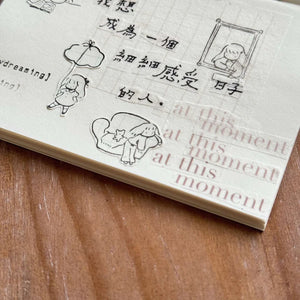 我想
成為一個
細細感受日子
的人.
ydreaming]
ning]
at this
moment
at this
moment
at this
moment